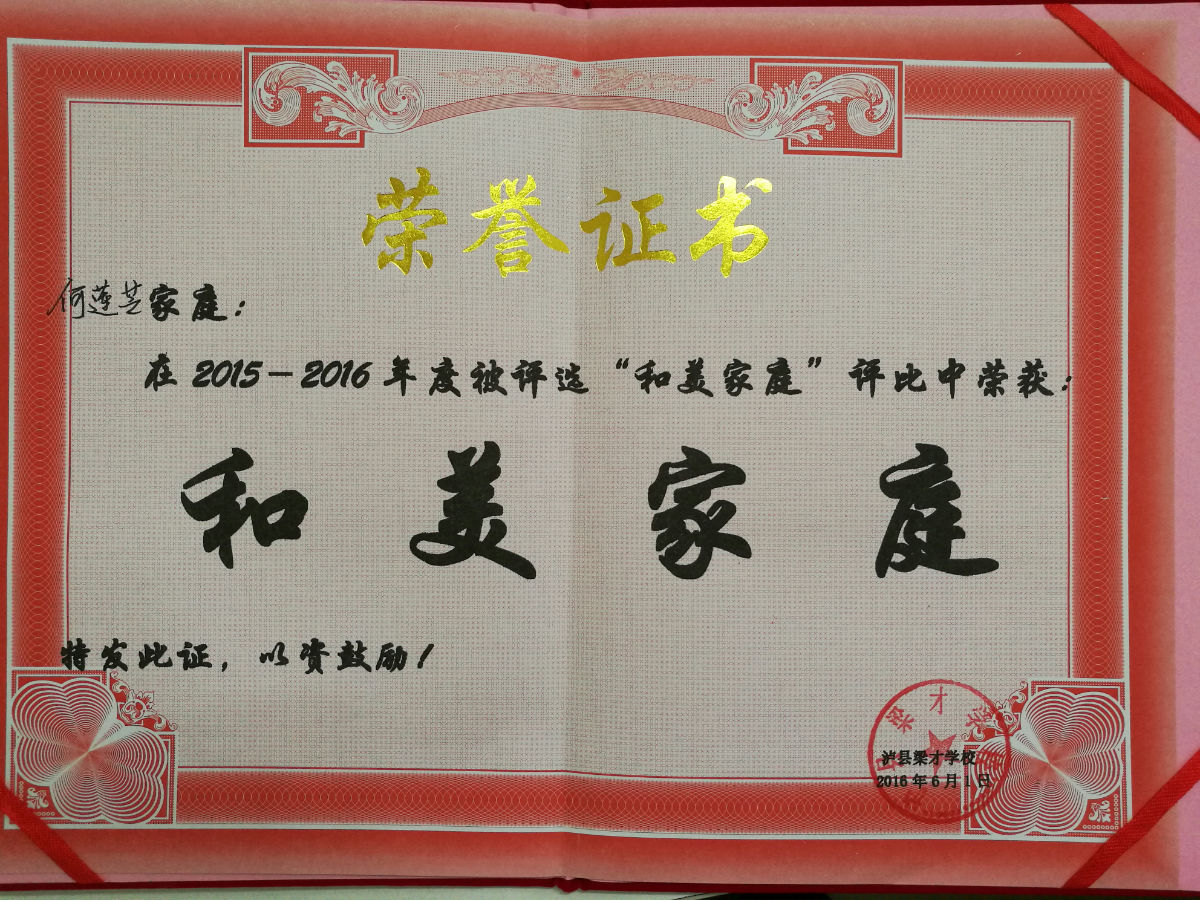 荣誉证书
何莲芝家庭：
在 2015－2016 年度被评选“和美家庭”评比中荣获：
和美家庭
特发此证，以资鼓励！
梁才学
泸县梁才学校
2016 年 6 月 1 日